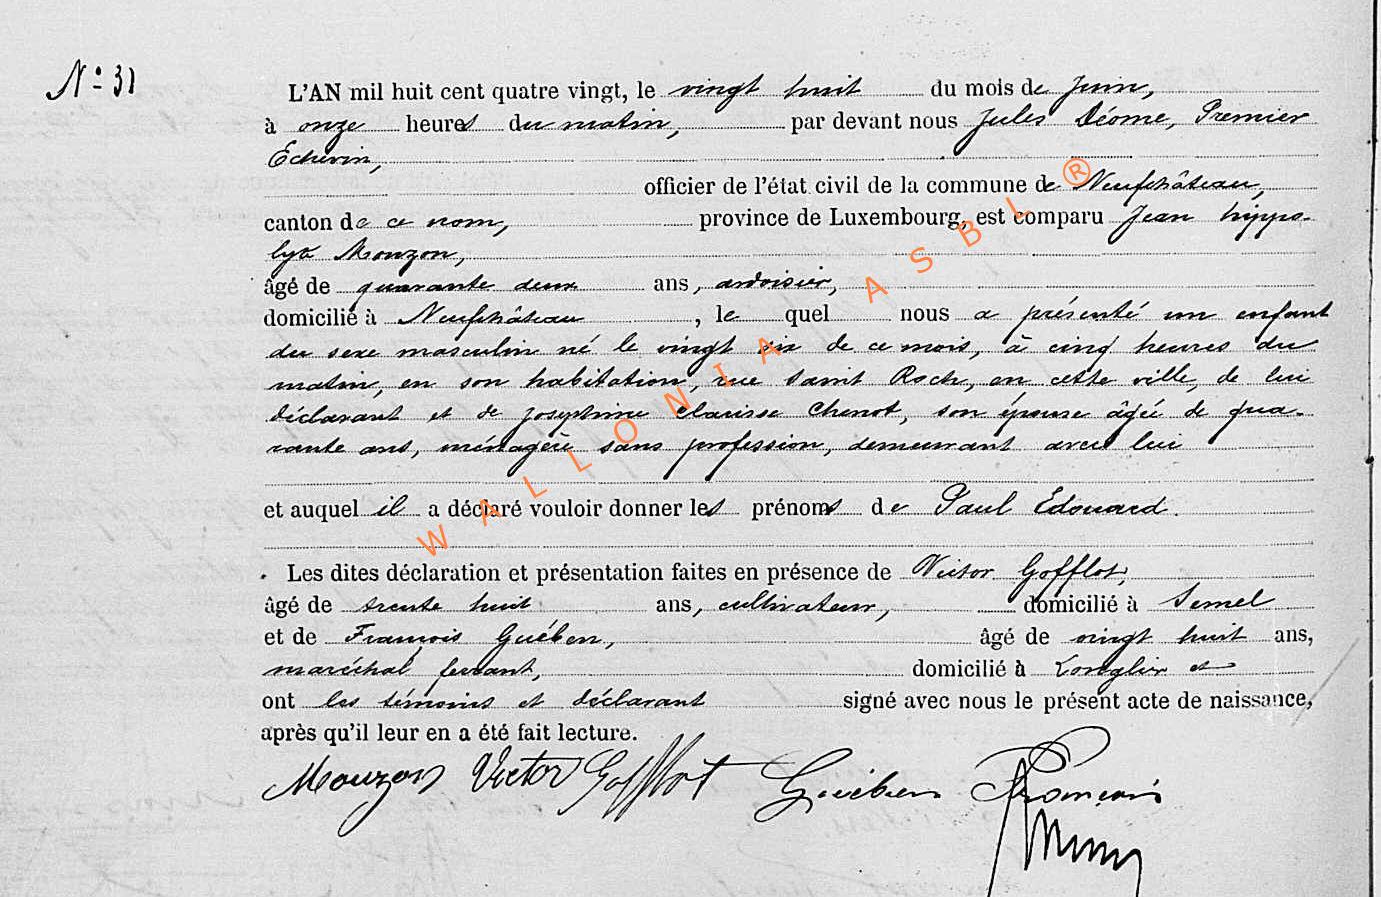 N° 31
L'AN mil huit cent quatre vingt, le vingt huit du mois de Juin,
à onze heures du matin, par devant nous Jules Déome, Premier
Echevin,
officier de l'état civil de la commune de Neufchâteau,
canton de ce nom, province de Luxembourg, est comparu Jean hippo-
lyte Mouzon,
âgé de quarante deux ans, ardoisier,
domicilié à Neufchâteau, le quel nous a présenté un enfant
du sexe masculin né le vingt six de ce mois, à cinq heures du
matin, en son habitation, rue Saint Roch, en cette ville, de lui
déclarant et de Joséphine Clarisse Chenot, son épouse âgée de qua-
rante ans, ménagère sans profession, demeurant avec lui
et auquel il a déclaré vouloir donner les prénoms de Paul Edouard.
Les dites déclaration et présentation faites en présence de Victor Gofflot,
âgé de trente huit ans, cultivateur, domicilié à Semel
et de François Guében, âgé de vingt huit ans,
maréchal ferrant, domicilié à Longlier et
ont les témoins et déclarant signé avec nous le présent acte de naissance,
après qu'il leur en a été fait lecture.
Mouzon Victor Gofflot Guében François
WALLONIA ASBL ®